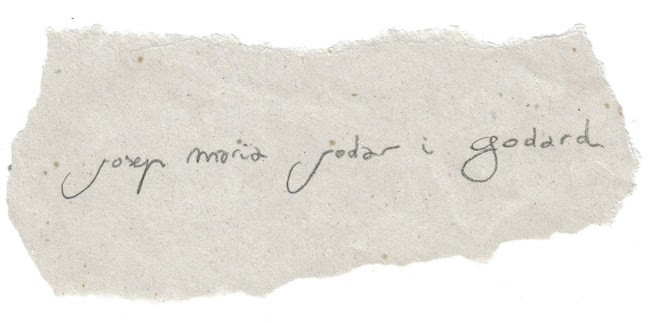 josep maria jodar i godard